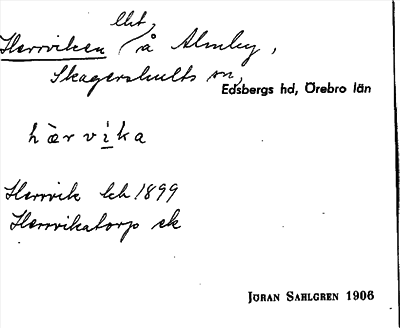 lht,
Herrviken å Almby,
Skagershults sn,
Edsbergs hd, Örebro län
hàrvika
Herrvik lch 1899
Herrvikatorp ek
JÖRAN SAHLGREN 1906